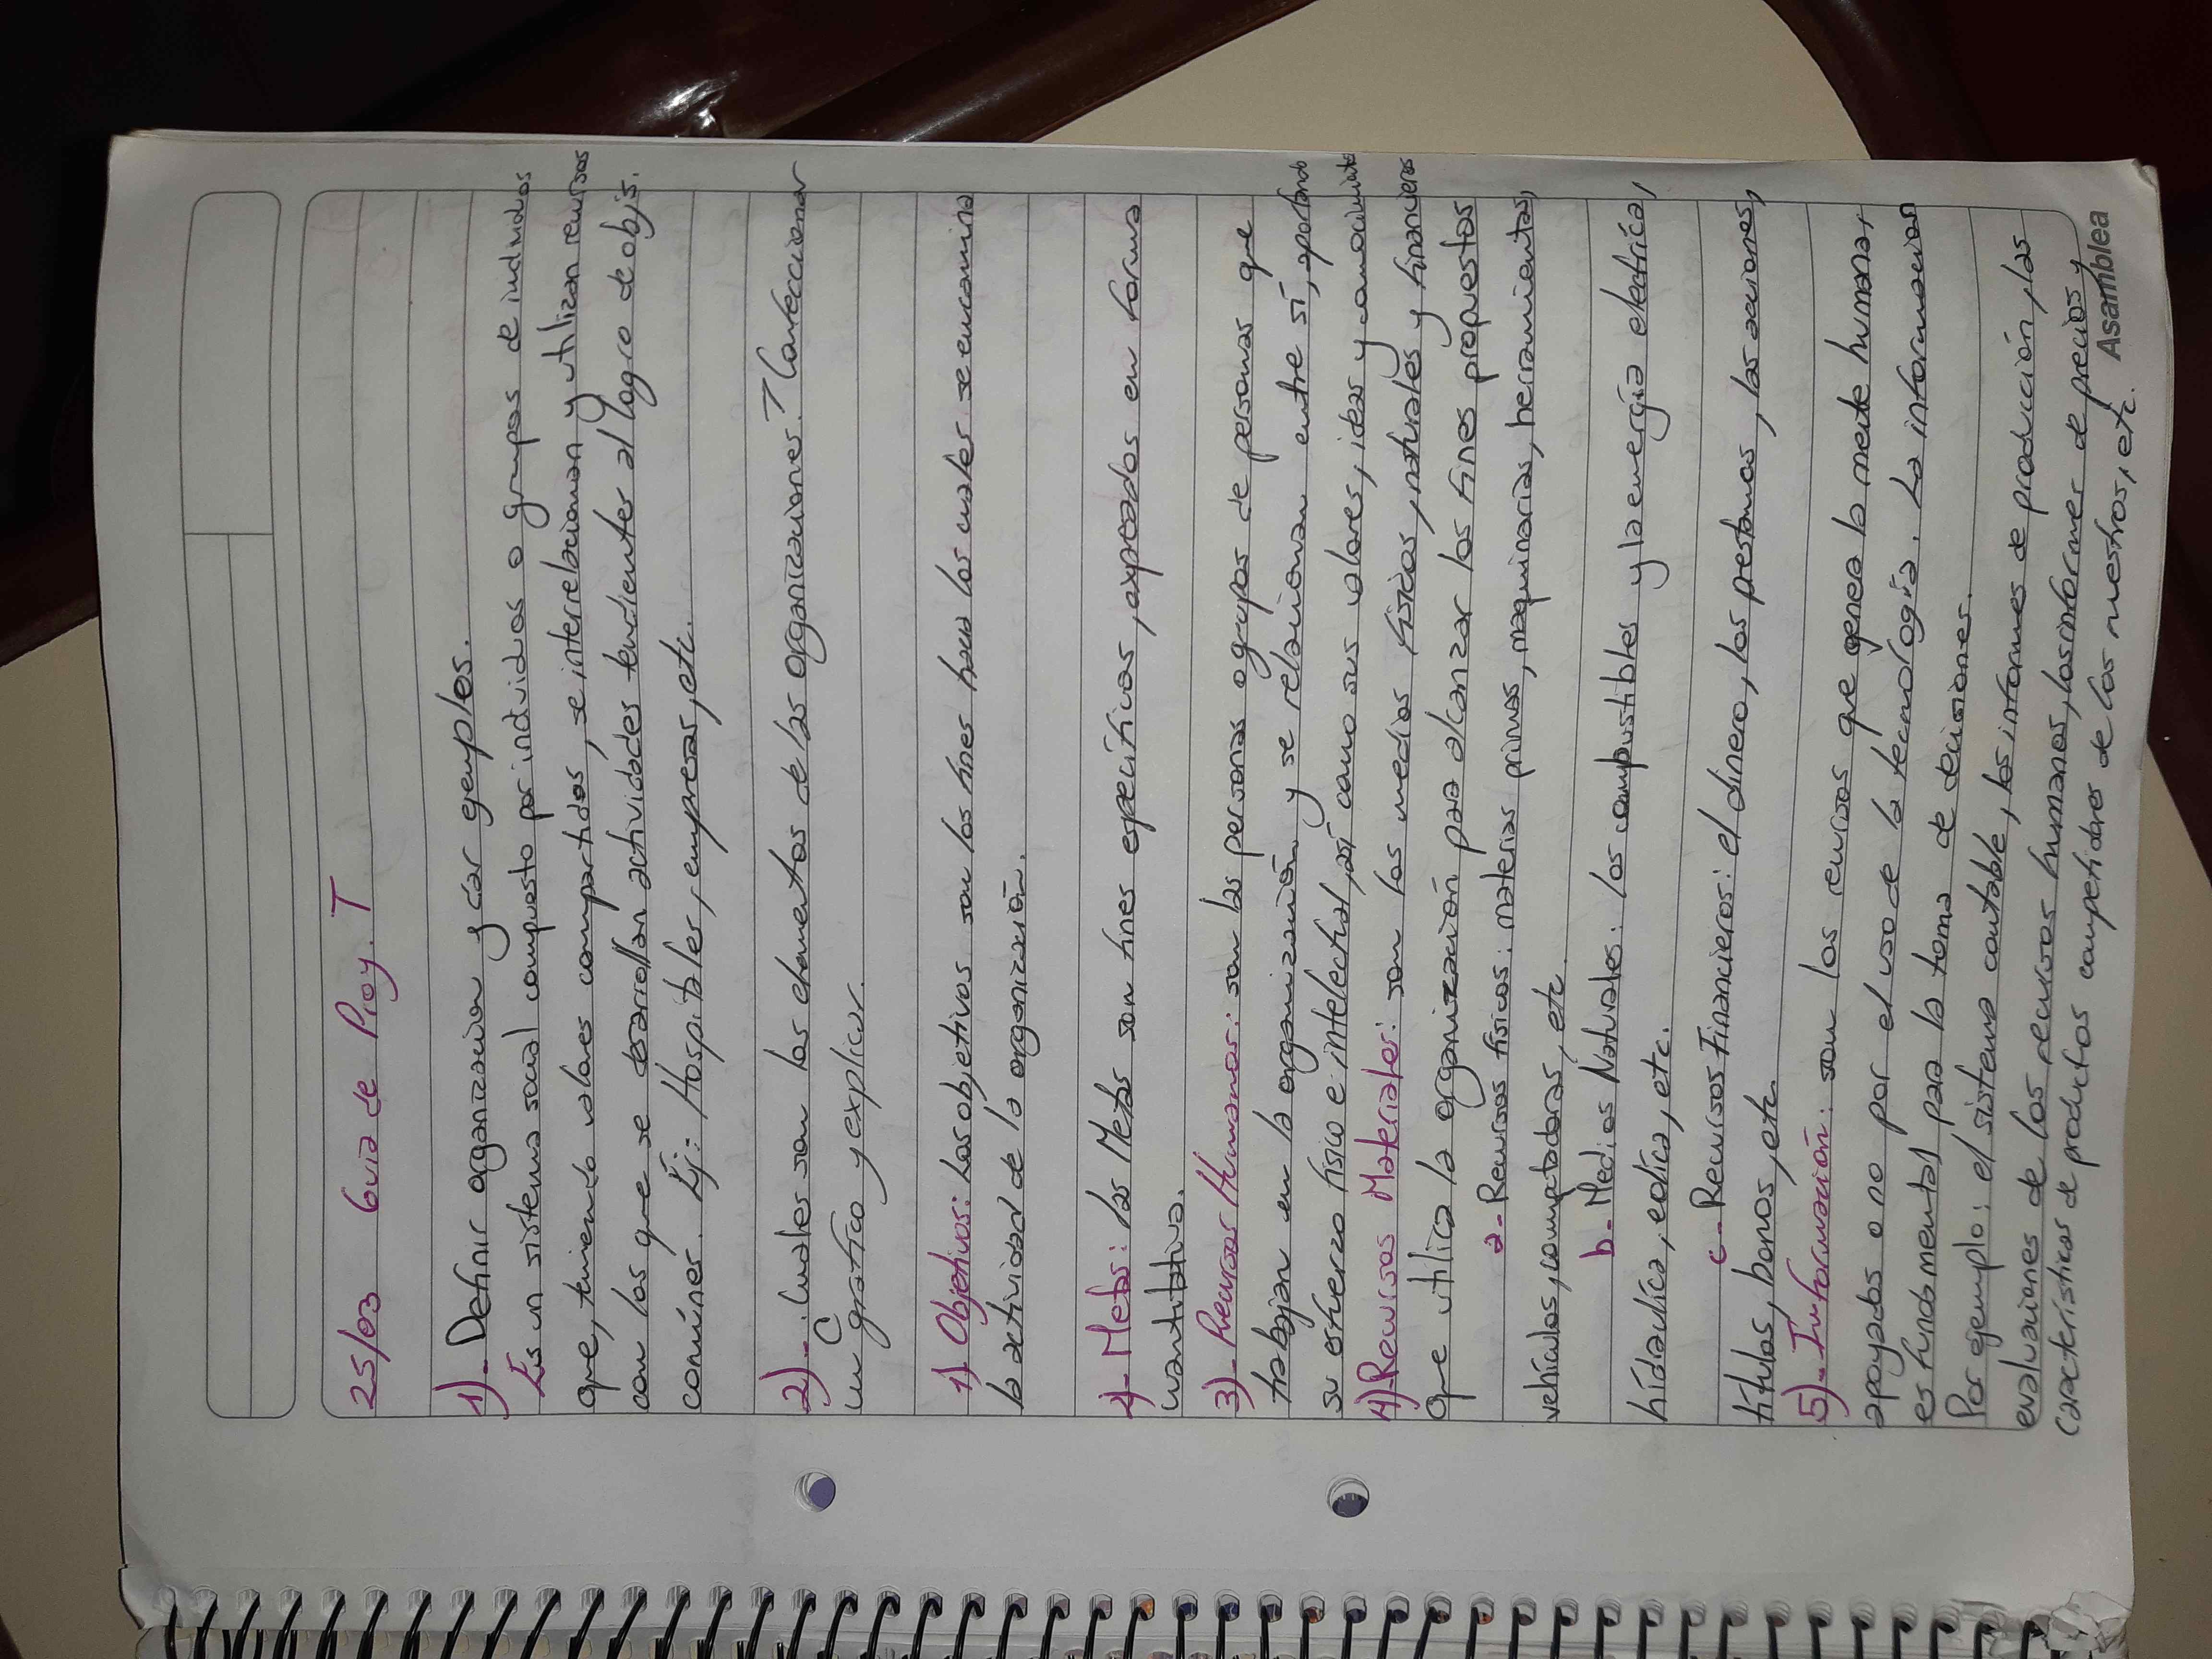 25/03 Guia de Proy. T
1)- Definir organizacion y dar ejemplos.
Es un sistema social compuesto por individuos o grupos de individuos
que, teniendo valores compartidos, se interrelacionan y utilizan recursos
con los que se desarrollan actividades tendientes al logro de objs.
comúnes. Ej: Hospitales, empresas, etc.
2)- ¿Cuales son los elementos de las organizaciones? Confeccionar
un grafico y explicar.
1) Objetivos: Los objetivos son los fines hacia los cuales se encamina
la actividad de la organización.
2)- Metas: Las Metas son fines especificos, expresados en forma
cuantitativa.
3)- Recursos Humanos: son las personas o grupos de personas que
trabajan en la organización y se relacionan entre sí, aportando
su esfuerzo físico e intelectual, así como sus valores, ideas y conocimientos
4) Recursos Materiales: son los medios físicos, naturales y financieros
que utilica la organización para alcanzar los fines propuestos
a- Recursos físicos: materias primas, maquinarias, herramientas,
vehículos, computadoras, etc.
b- Medios Naturales: los combustibles y la energía electrica,
hídaulica, eolica, etc.
c- Recursos Financieros: el dinero, los prestamos, las acciones,
titulos, bonos, etc
5)- Información: son los recursos que genera la mente humana,
apoyados o no por el uso de la tecnología. La informacion
es fundamental para la toma de decisiones.
Por ejemplo: el sistema contable, los informes de producción, las
evaluaciones de los recursos humanos, los informes de precios y
características de productos competidores de los nuestros, etc.
Asamblea